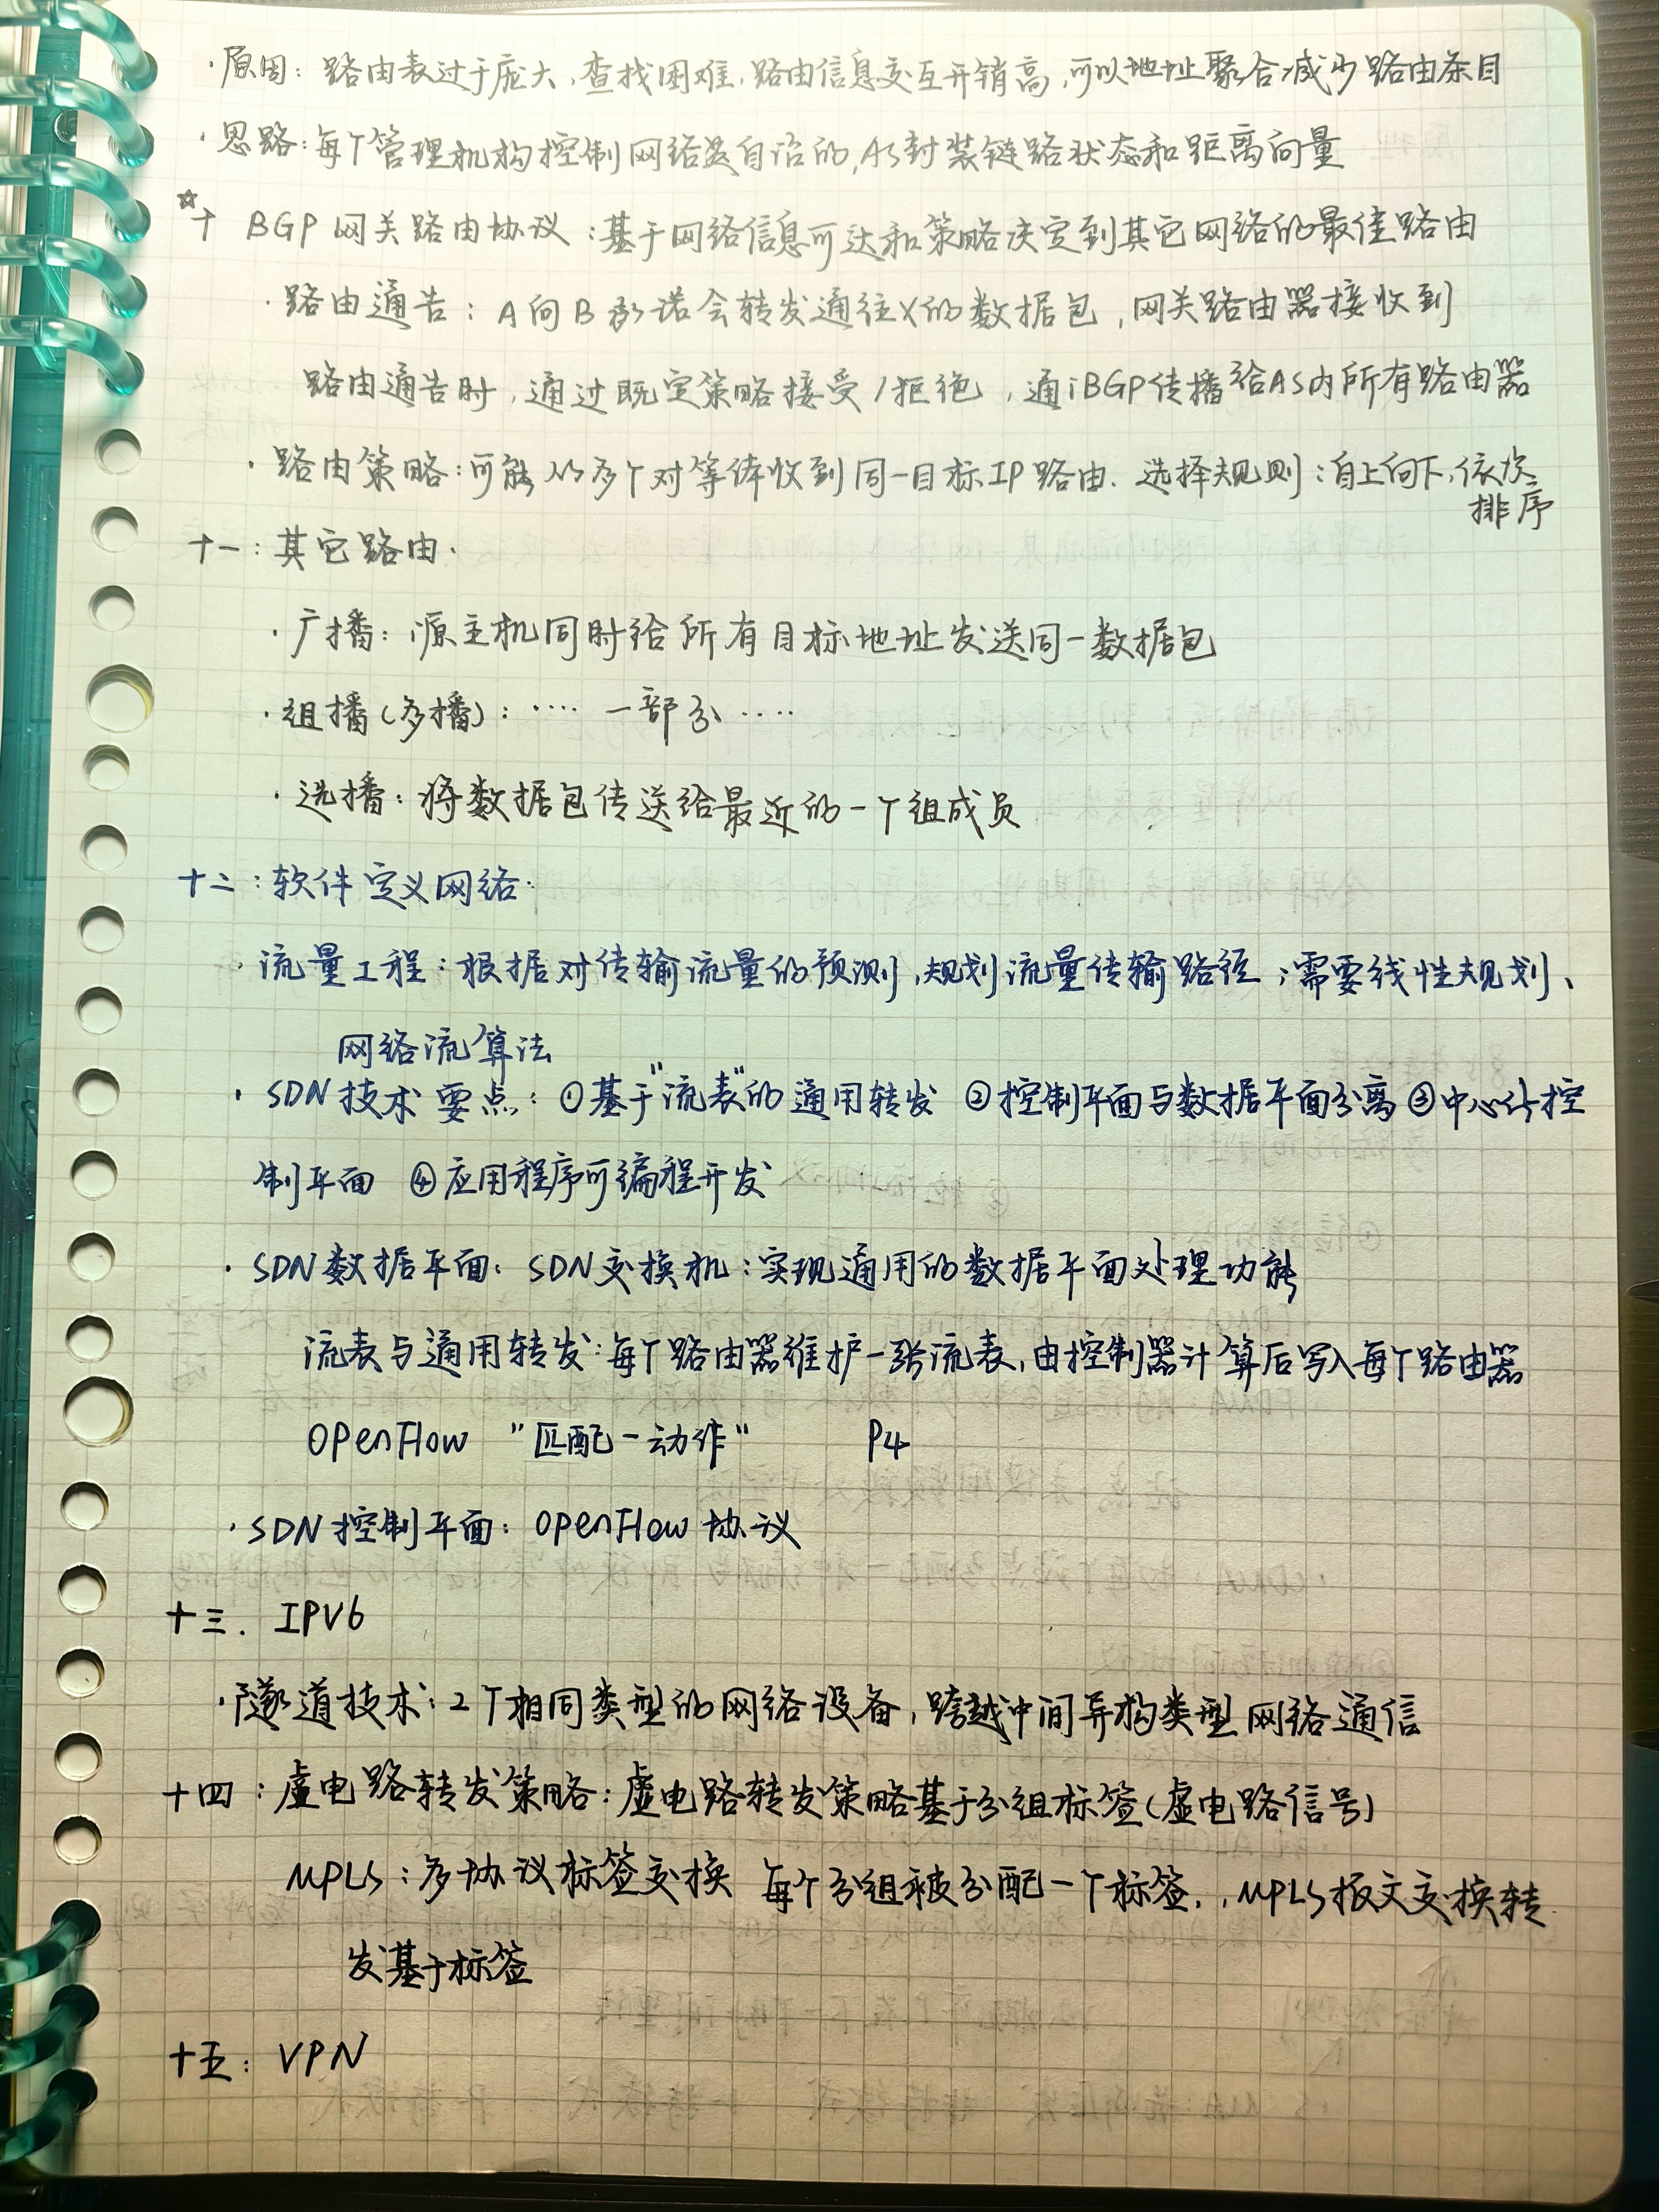 ·原因：路由表过于庞大，查找困难，路由信息交互开销高，可以地址聚合减少路由条目
·思路：每个管理机构控制网络是自治的，AS封装链路状态和距离向量
☆十 BGP 网关路由协议：基于网络信息可达和策略决定到其它网络的最佳路由
·路由通告：A向B承诺会转发通往X的数据包，网关路由器接收到
路由通告时，通过既定策略接受/拒绝，通iBGP传播给AS内所有路由器
·路由策略：可能从多个对等体收到同一目标IP路由．选择规则：自上向下，依次
排序
十一：其它路由．
·广播：源主机同时给所有目标地址发送同一数据包
·组播(多播)：···· 一部分····
·选播：将数据包传送给最近的一个组成员
十二：软件定义网络．
·流量工程：根据对传输流量的预测，规划流量传输路径；需要线性规划、
网络流算法
·SDN技术要点：①基于"流表"的通用转发 ②控制平面与数据平面分离 ③中心化控
制平面 ④应用程序可编程开发
·SDN数据平面：SDN交换机：实现通用的数据平面处理功能
流表与通用转发：每个路由器维护一张流表，由控制器计算后写入每个路由器
OpenFlow "匹配-动作" P4
·SDN控制平面：OpenFlow协议
十三．IPV6
·隧道技术：2个相同类型的网络设备，跨越中间异构类型网络通信
十四：虚电路转发策略：虚电路转发策略基于分组标签(虚电路信号)
MPLS：多协议标签交换 每个分组被分配一个标签．，MPLS报文交换转
发基于标签
十五：VPN